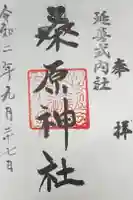 奉拝
延喜式内社
桑原神社
令和二年九月廿七日